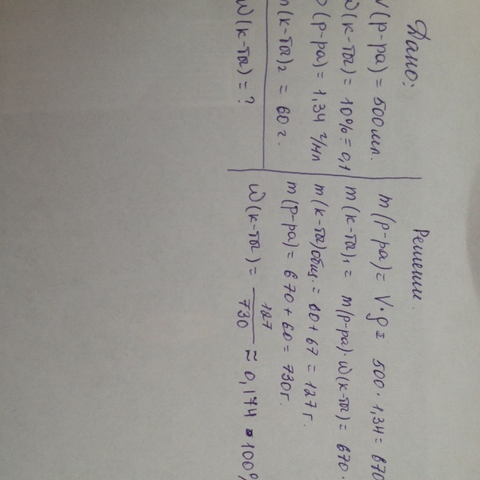 Дано:
V(р-ра) = 500 мл.
W(к-ты) = 10% = 0,1
(р-ра) = 1,34 г/мл
m(к-ты)₂ = 60 г.
W(к-ты) = ?
Решение
m(р-ра) = V·ρ = 500 · 1,34 = 670
m(к-ты)₁ = m(р-ра)·W(к-ты) = 670 ·
m(к-ты)общ. = 60 + 67 = 127 г.
m(р-ра) = 670 + 60 = 730 г.
W(к-ты) = 127/730 ≈ 0,174 · 100%